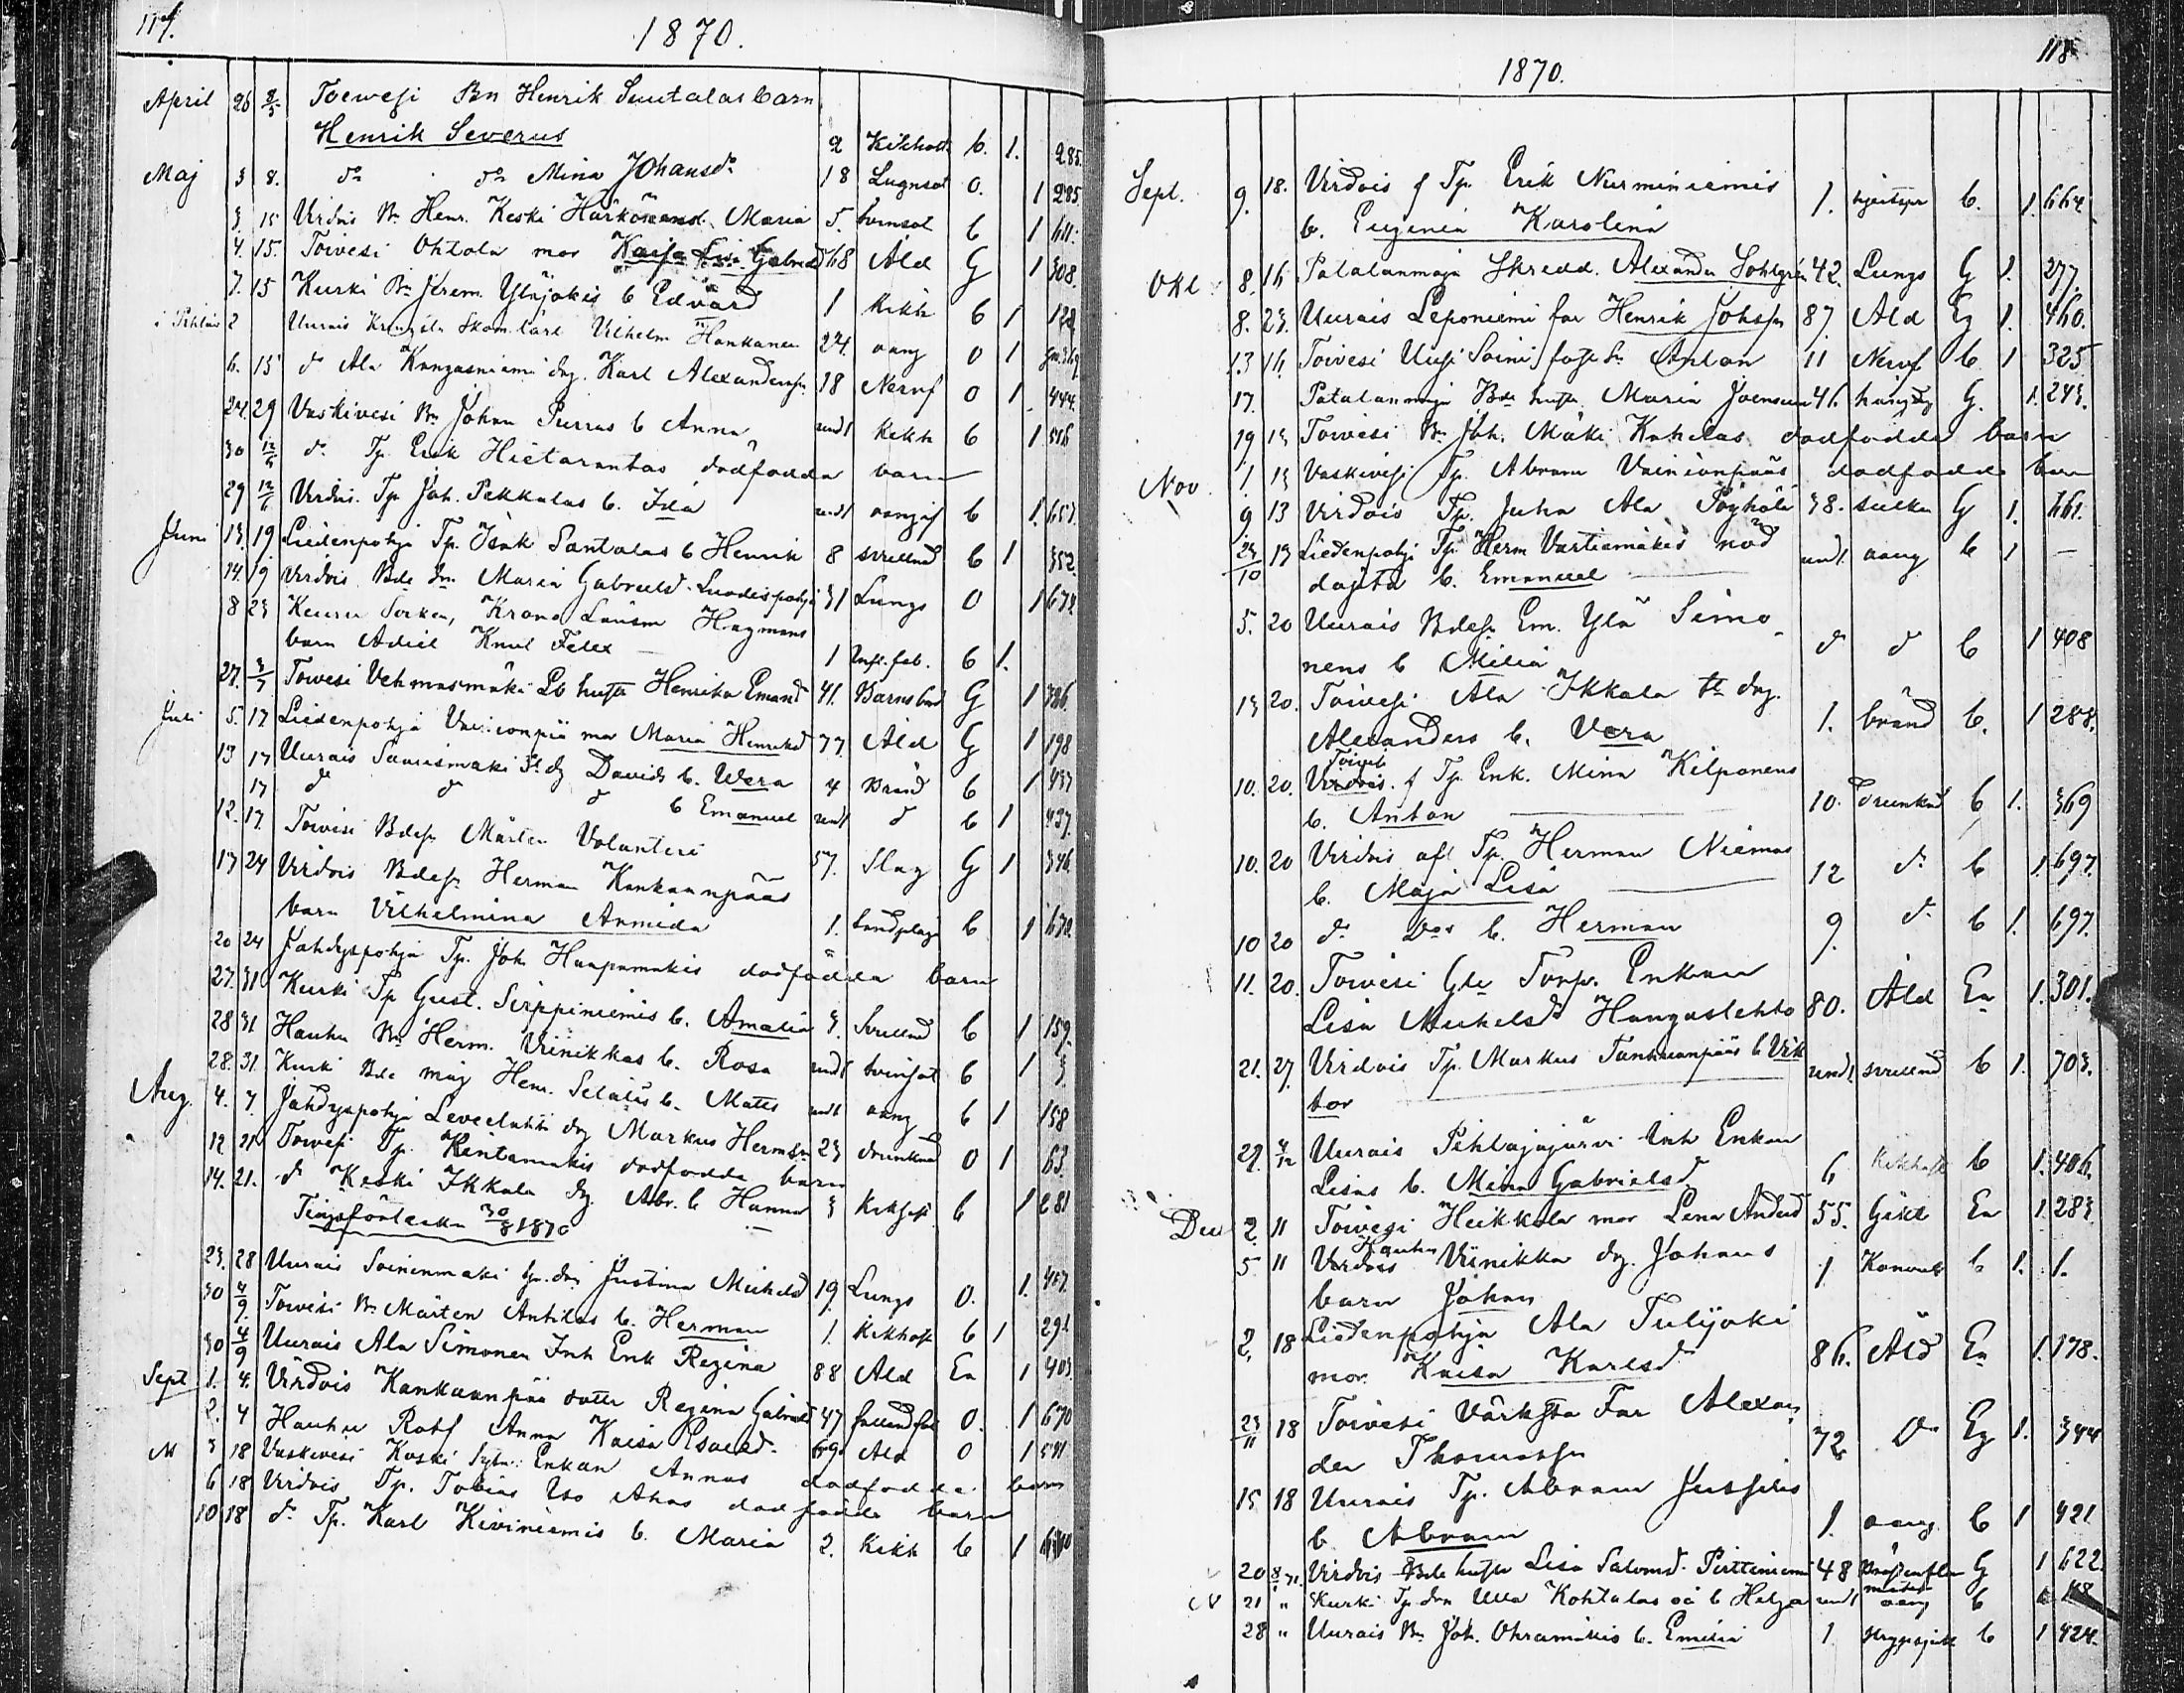 117.
1870.
April 26 8/5 Toewesi Bn Henrik Suutalas barn
Henrik Severus 2 Kikhost b. 1. 285.
Maj 3 8. do do Mina Johansdr 18 Lugnsot O. 1 285.
3 15 Virdois Bn Henr. Keski Härkönens Maria 5. tvinsot b 1 611.
4. 15. Toivesi Ohtola mor Kaisa Lisa Gabrielsd 68 Åld G 1 308
7. 15 Kurki Bn Jerem. Yläjokis b Edvard 1 Kikh b 1 122
2 Uurais Skomlärl Vilhelm Hankanen 24. aang O 1
6. 15 do Ala Kangasniemi drg. Karl Alexandersn 18 Nervf O 1 444.
24. 29 Vaskivesi Bn Johan Purras b Anna undt Kikh b 1 516
30 12/6 do Tp. Erik Hietarantas dödfödda barn
29 12/6 Virdois. Tp Joh. Pekkalas b. Ida undt aangst b 1. 657.
Juni 13. 19. Liedenpohja Tp. Isak Santalas b Henrik 8 svullnad b 1 352.
14. 19 Virdois Bde dr. Maria Gabrielsd. Luodespohja 31 Lungs O 1 674
8 23 Keuru Socken, Krono Länsm Hagmans
barn Adiel Knut Felex 1 Infl. feb. b 1.
27. 3/7 Toivesi Vehmasmäki Lb hustr Henrika Emand 41. Barnsbörd G 1 326.
Juli 5. 17 Liedenpohja Vainionpää mor Maria Henriksd 77 Åld G 1 198
13 17 Uurais Saurismäki St dg Davids b. Wera 4 Bränd b 1 437
17 do do do b Emanuel undt do b 1 437.
12. 17. Toivesi Bdesn Mårten Volanteri 57. Slag G 1 346
17 24 Virdois Bdesn Herman Kankaanpääs
barn Vilhelmina Armida 1. b 1 670
20 24 Jähdyspohja Tp. Joh. Haapamäkis dödfödda barn
27. 31 Kurki Tp Gust. Sirppiniemis b. Amalia 3. Svullnad b 1 159.
28 31 Hauhu Bn Herm. Viinikkas b. Rosa undt tvinsot b 1 3.
28. 31. Kurki Bde måg Henr. Seläläs b. Matts undt aang b 1 158
Aug. 4. 7. Jähdyspohja Leveelahti drg Markus Hermsn 23 drunknad O 1 63.
12 21 Toivesi Tp. Rintamäkis dödfödda barn
14. 21. do Keski Ikkala dg. Abr. b Hanna 3 Kikhost b 1 281
Tingsförteckn 30/8 1870
23. 28 Uurais Soininmäki tp. dr. Justina Mickelsd 19 Lungs O. 1. 457.
30 4/9. Toivesi Bn Mårten Antilas b. Herman 1. Kikhost b 1 291
30 4/9 Uurais Ala Simonen Inh Enk Regina 88 Åld En 1 403
Sept 1. 4. Virdois Kankaanpää dotter Regina Gabrielsd 47 fallandsot O. 1 670
2. 4 Hauhu Rothj Anna Kaisa Esaiasd. 69 Åld O 1
M 3 18 Vaskivesi Koski Enkan Annas dödfödda barn
6 18 Virdois Tp. Tobias Iso Ahos dödfödda barn
10 18 do Tp. Karl Kiviniemis b. Maria 2. Kikh b 1
118
1870.
Sept. 9. 18. Virdois f Tp. Erik Nurminiemis
b. Eugenia Karolina 1. b. 1. 664.
Okt. 8. 16 Patalanmaja Skredd. Alexander Sohlgrén 42. Lungs G 1. 277.
8. 23. Uurais Leponiemi far Henrik Johsn 87 Åld Eg 1. 460.
13 16 Toivesi Uusi Soini fosts sn Anton 11 Nervf b 1 325
17. Patalanmaja Bde hustr. Maria Joensuu 46 G. 1. 243.
19 13 Toivesi Bn Joh. Mäki Kahilas dödfödda barn
Nov. 1 13 Vaskivesi Tp. Abram Vainionpääs dödfödda barn
9 13 Virdois Tp. Juha Ala Pöyhölä 38. G 1. 661.
23/10 13 Liedenpohja Tp. Herm Vartiamäkis nöd
döpta b. Emanuel undt. aang b 1 —
5. 20 Uurais Bdesn Em. Ylä Simo
nens b Milia do do b 1 408
13 20. Toivesi Ala Ikkala tr drg.
Alexanders b. Vera 1. bränd b. 1 288.
10. 20. Toivesi f Tp. Enk. Mina Kilponens
b. Anton 10. drunknad b 1. 369
10. 20 Virdois afl Tp. Herman Niemas
b. Maja Lisa 12 do b 1. 697.
10 20 do Dos b. Herman 9. do b 1. 697.
11. 20. Toivesi Gle Torp. Enkan
Lisa Mickelsd Hangaslehto 80. Åld En 1. 301.
21. 27. Virdois Tp. Markus Tanhuanpääs b Vik
tor undt svullnad b 1. 703.
29. 4/12 Uurais Pihlajajärvi Inh Enkan
Lisas b. Mina Gabrielsd. 6 Kikhost b 1. 406.
Dec 2. 11 Toivesi Heikkola mor Lena Andersd 55. Gikt En 1. 283.
5 11 Hauhu Viinikka dg. Johans
barn Johan 1 b 1. 1.
2. 18 Liedenpohja Ala Tulijoki
mor. Kaisa Karlsd 86. Åld En 1. 178.
23/11 18 Toivesi Värkstä Far Alexan
der Thomassn 72 Do Eg 1. 344
15 18 Uurais Tp. Abram Jussilas
b. Abram 1. aang b 1 421
20 8/1 71. Virdois Bde hustr Lisa Salomsd. Pirttiniemi 48 G 1 622.
N 21 " Kurki Tp drn Ulla Kohtalas oä b Helga undt aang b
28 " Uurais Bn Joh. Ohramäkis b. Emilia 1 b 1 424.